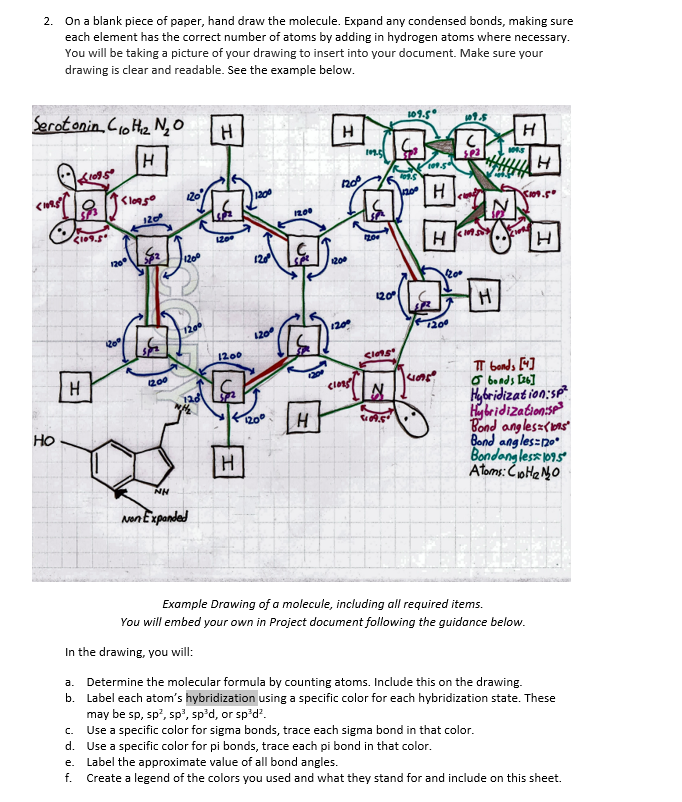 2. On a blank piece of paper, hand draw the molecule. Expand any condensed bonds, making sure
each element has the correct number of atoms by adding in hydrogen atoms where necessary.
You will be taking a picture of your drawing to insert into your document. Make sure your
drawing is clear and readable. See the example below.
Serotonin C10 H12 N2 O
109.5° 109.5
H H H
H C C H
<109.5° sp3 sp2 109.5
109.5 109.5
<109.5 <109.5° 120° 120° 120° 109.5 120° H <109.5°
O sp3 C sp2 120° C sp2 N sp3
<109.5° 120° 120° 120° H <109.5° H
C sp2 120° 120° C sp2 120°
120° 120°
120° C sp2 H
120° 120° 120° 120° 120°
C sp2 120° C
120° <109.5° <109.5°
H 120° C sp2 120° <109.5° N
NH2 120° 120° H <109.5°
HO H
NH
Non Expanded
π bonds [4]
σ bonds [26]
Hybridization: sp²
Hybridization: sp³
Bond angles=<109.5°
Bond angles=120°
Bond angles=109.5°
Atoms: C10H12N2O
Example Drawing of a molecule, including all required items.
You will embed your own in Project document following the guidance below.
In the drawing, you will:
a. Determine the molecular formula by counting atoms. Include this on the drawing.
b. Label each atom's hybridization using a specific color for each hybridization state. These
may be sp, sp², sp³, sp³d, or sp³d².
c. Use a specific color for sigma bonds, trace each sigma bond in that color.
d. Use a specific color for pi bonds, trace each pi bond in that color.
e. Label the approximate value of all bond angles.
f. Create a legend of the colors you used and what they stand for and include on this sheet.